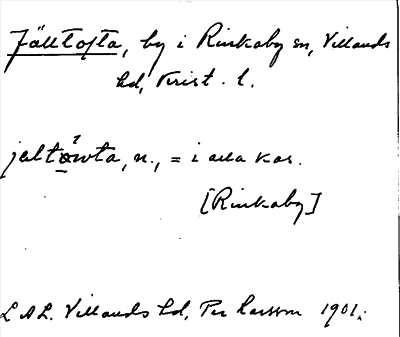 Jälltofta, by i Rinkaby sn, Villands
hd, Krist. l.
jaltòwta, n., = i alla kas.
[Rinkaby]
L A L. Villands hd, Per Larsson 1901.